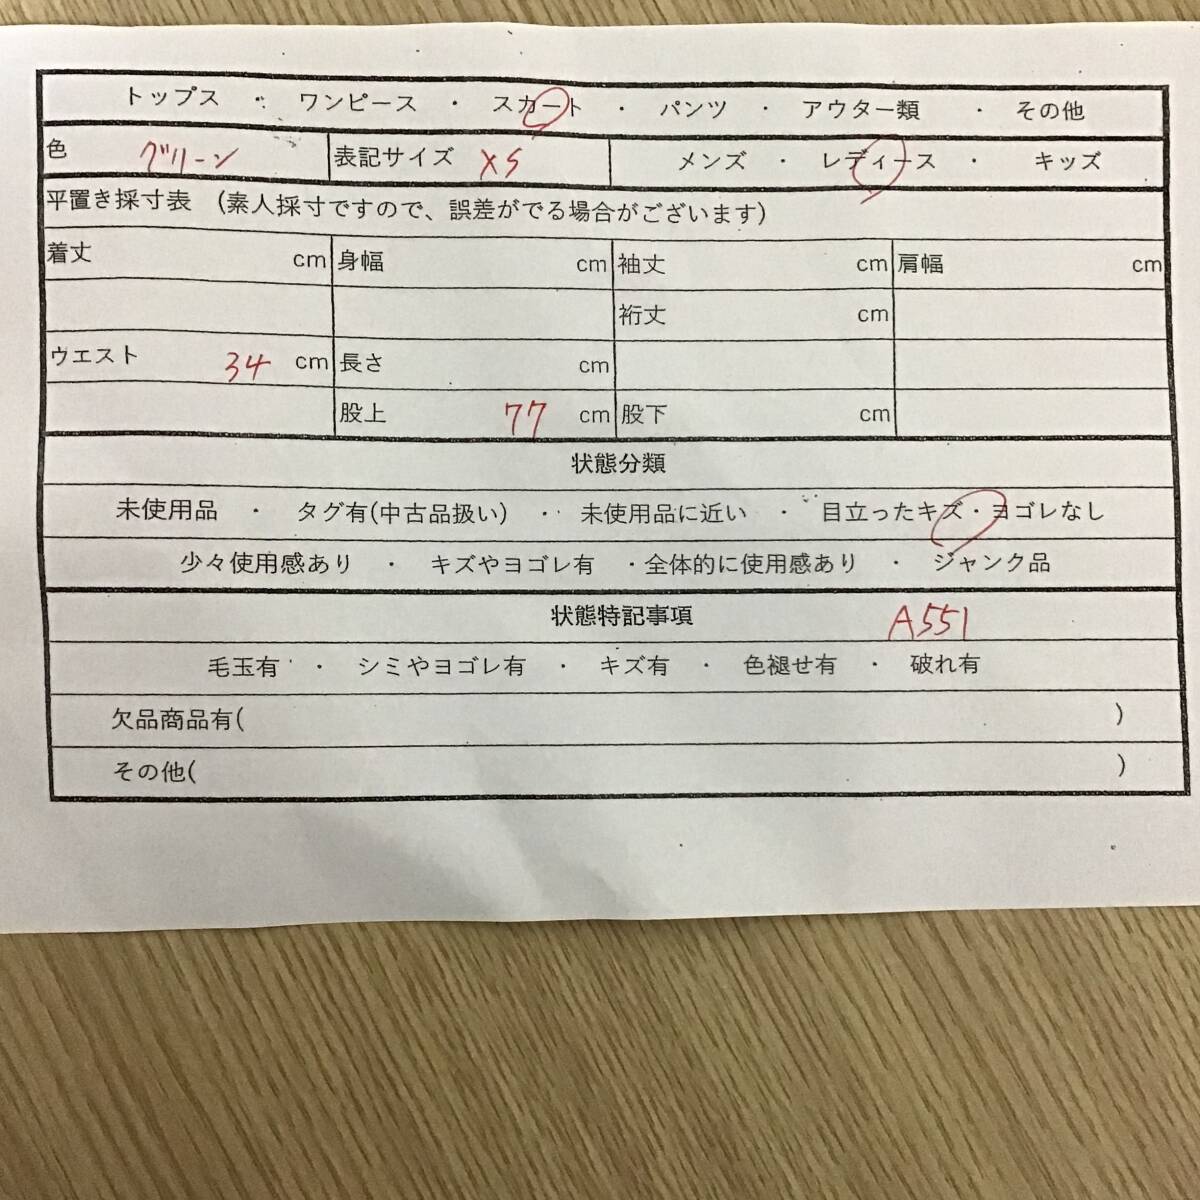 トップス ・ ワンピース ・ スカート ・ パンツ ・ アウター類 ・ その他
色 グリーン 表記サイズ XS メンズ ・ レディース ・ キッズ
平置き採寸表 (素人採寸ですので、誤差がでる場合がございます)
着丈 cm 身幅 cm 袖丈 cm 肩幅 cm
裄丈 cm
ウエスト 34 cm 長さ cm
股上 77 cm 股下 cm
状態分類
未使用品 ・ タグ有(中古品扱い) ・ 未使用品に近い ・ 目立ったキズ・ヨゴレなし
少々使用感あり ・ キズやヨゴレ有 ・全体的に使用感あり ・ ジャンク品
状態特記事項 A551
毛玉有 ・ シミやヨゴレ有 ・ キズ有 ・ 色褪せ有 ・ 破れ有
欠品商品有( )
その他( )